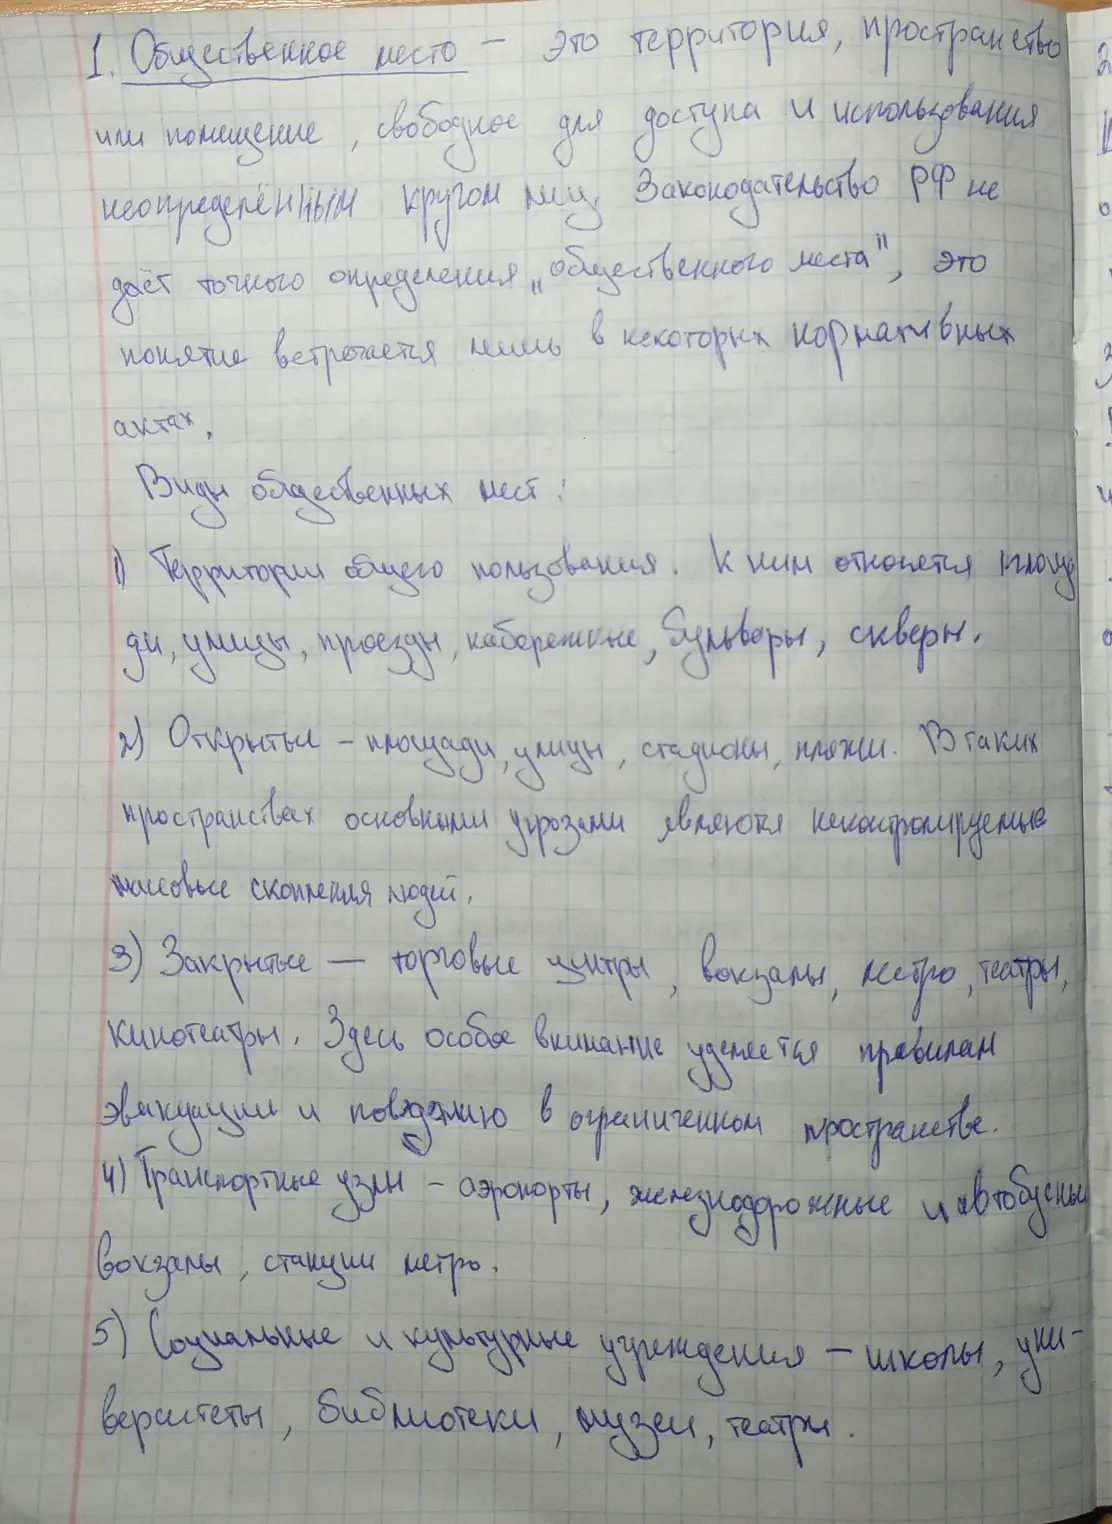 1. Общественное место – это территория, пространство
или помещение, свободное для доступа и использования
неопределённым кругом лиц. Законодательство РФ не
даёт точного определения „общественного места", это
понятие встречается лишь в некоторых нормативных
актах.
Виды общественных мест:
1) Территории общего пользования. К ним относятся площа
ди, улицы, проезды, набережные, бульвары, скверы.
2) Открытые – площади, улицы, стадионы, пляжи. В таких
пространствах основными угрозами являются неконтролируемые
массовые скопления людей.
3) Закрытые — торговые центры, вокзалы, метро, театры,
кинотеатры. Здесь особое внимание уделяется правилам
эвакуации и поведению в ограниченном пространстве.
4) Транспортные узлы – аэропорты, железнодорожные и автобусны
вокзалы, станции метро.
5) Социальные и культурные учреждения – школы, уни-
верситеты, библиотеки, музеи, театры.